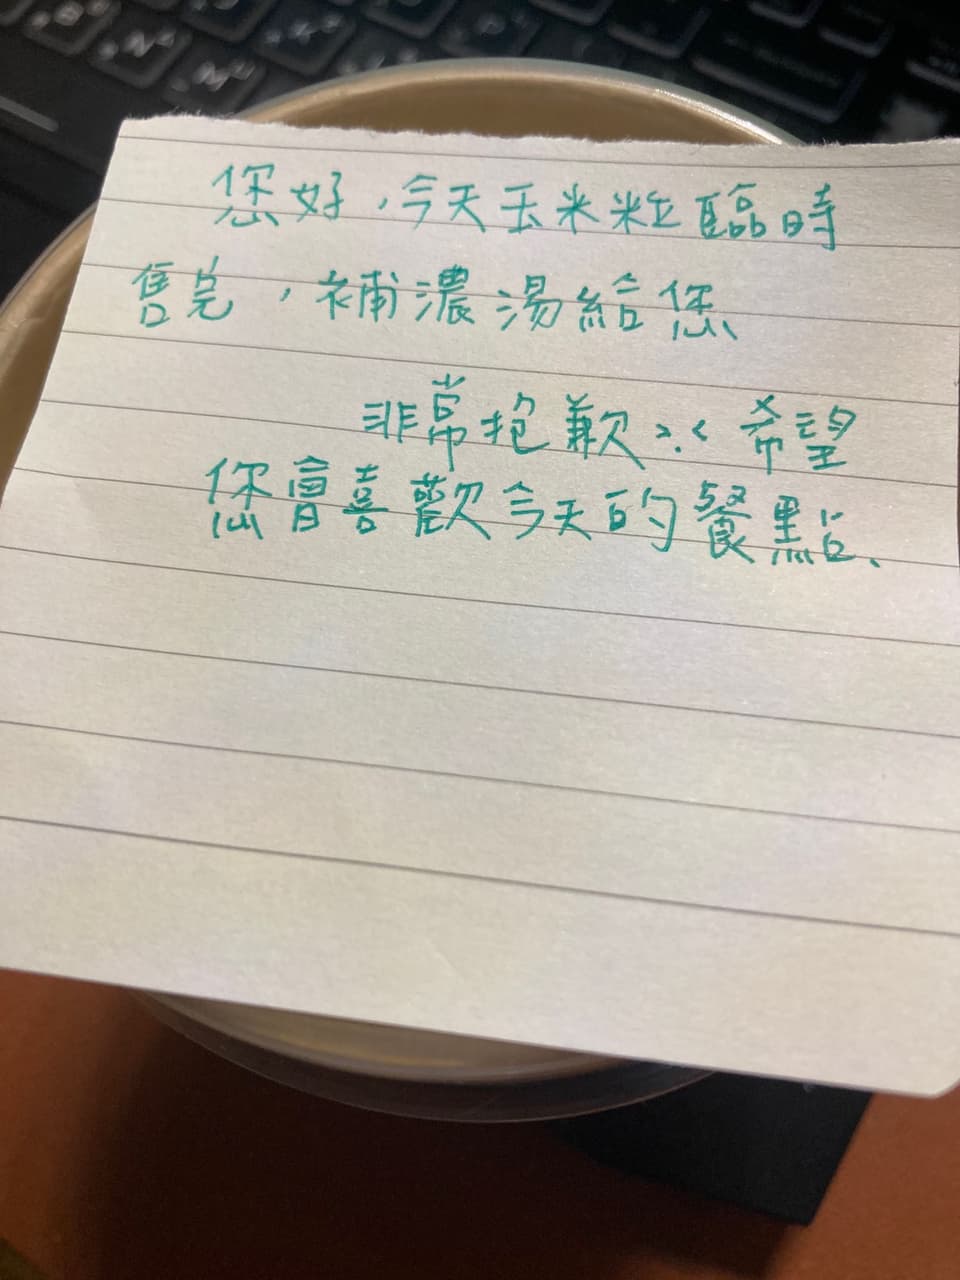 您好,今天玉米粒臨時
售完,補濃湯給您
非常抱歉>.< 希望
您會喜歡今天的餐點、